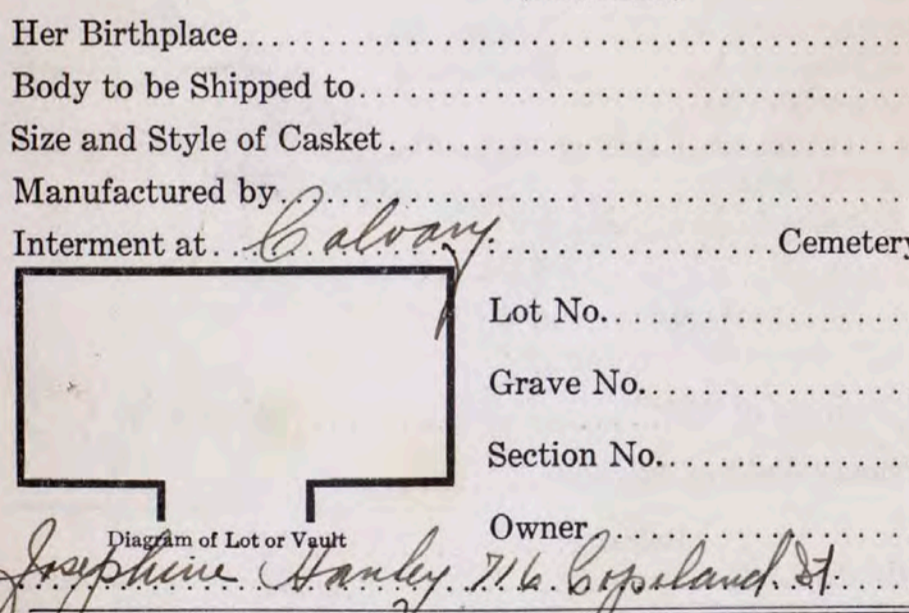 Her Birthplace
Body to be Shipped to
Size and Style of Casket
Manufactured by
Interment at Calvary Cemetery
Lot No.
Grave No.
Section No.
Owner
Diagram of Lot or Vault
Josephine Hanley 716 Copeland St.